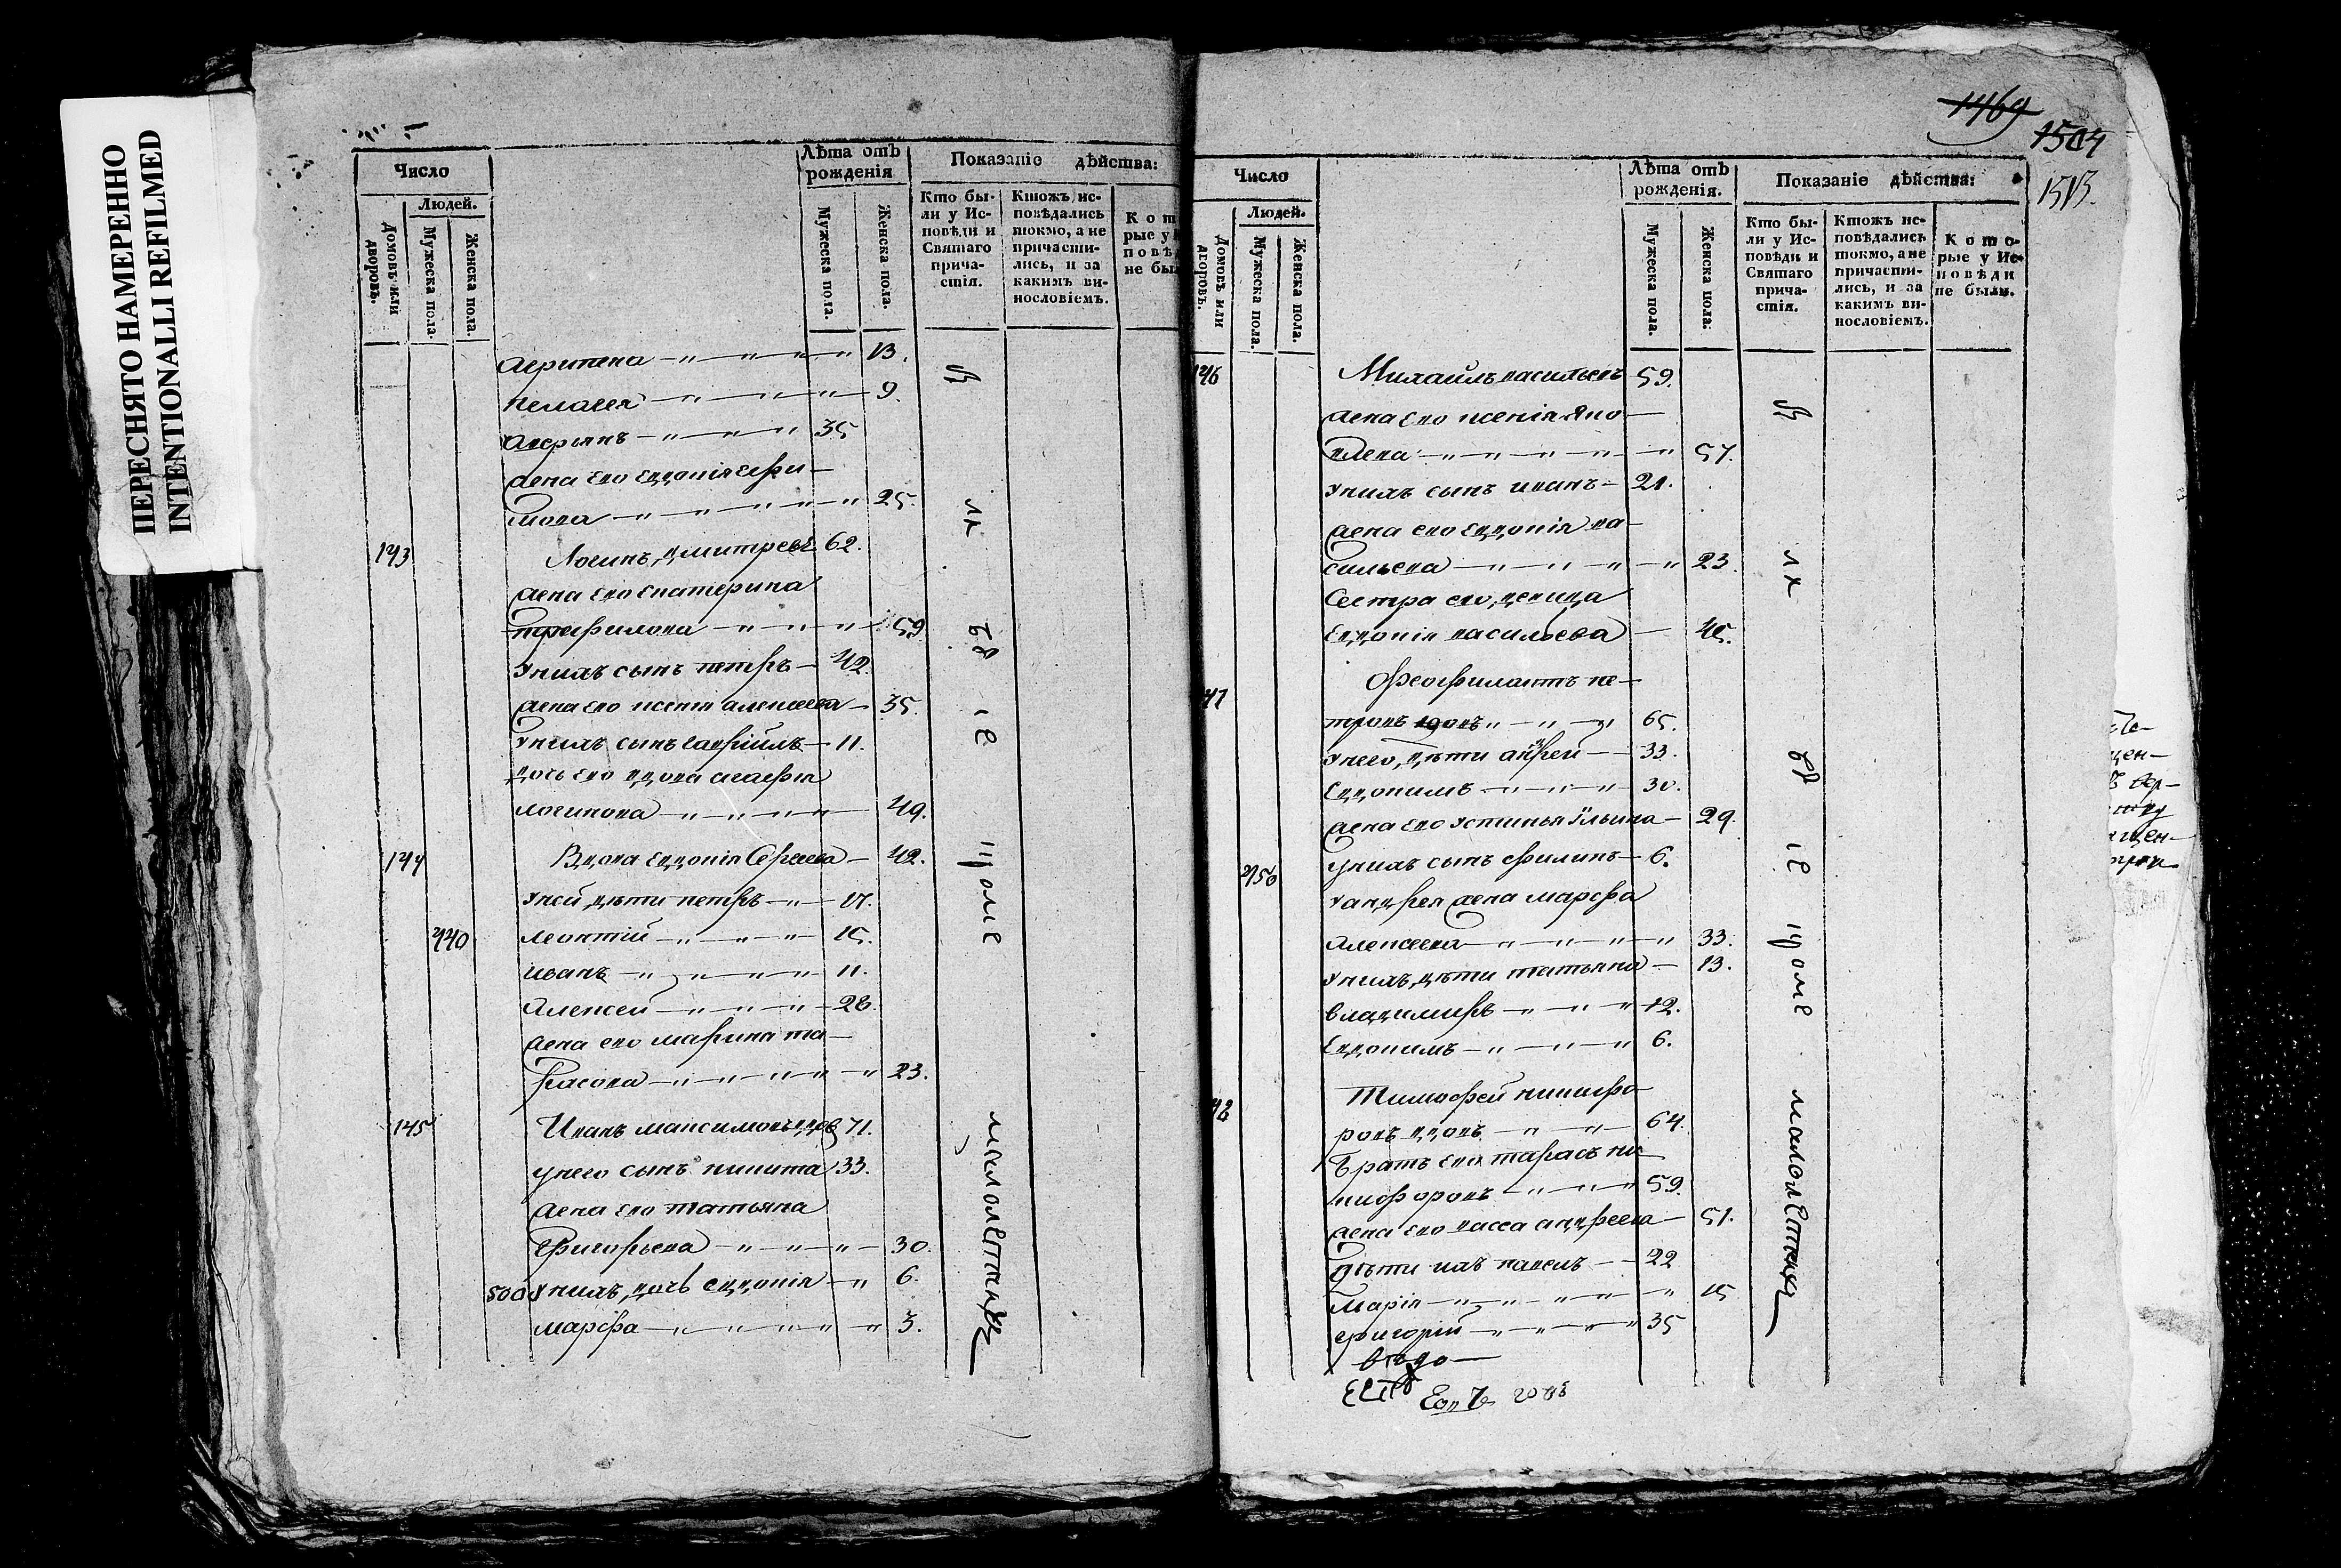 ПЕРЕСНЯТО НАМЕРЕННО
INTENTIONALLI REFILMED
Число
Людей.
Домовъ или дворовъ.
Мужеска пола.
Женска пола.
Лѣта отъ рожденія
Мужеска пола.
Женска пола.
Показаніе дѣйства:
Кто бы-
ли у Ис-
повѣди и
Святаго
прича-
стія.
Ктожъ ис-
повѣдались
токмо, а не
причасти-
лись, и за
какимъ ви-
нословіемъ.
Кот
рые у
повѣ
не был
агрипена 13.
пелагея 9.
аверьянъ 35
жена его евдокія ефи-
мова 25.
143 Логинъ дмитревъ 62.
жена его екатерина
трифилова 59
у нихъ сынъ петръ 42.
жена его ксенія алексеева 35.
у нихъ сынъ гаврііилъ 11.
дочь его вдова агафія
логинова 49.
144 Вдова евдокія Сергеева 42.
у ней дѣти петръ 17.
440 леонтій 15.
иванъ 11.
Алексей 28.
жена его марина та-
расова 23.
145 Иванъ максимовъ вдов 71.
у него сынъ никита 33.
жена его татьяна
Григорьева 30.
500 у нихъ дочь евдокія 6.
марфа 3.
малолетних
1469
1504
1513.
Число
Людей.
Домовъ или дворовъ.
Мужеска пола.
Женска пола.
Лѣта отъ рожденія.
Мужеска пола.
Женска пола.
Показаніе дѣйства:
Кто бы-
ли у Ис-
повѣди и
Святаго
прича-
стія.
Ктожъ ис-
повѣдались
токмо, а не
причасти-
лись, и за
какимъ ви-
нословіемъ.
Кото-
рые у Ис-
повѣди
не были.
146 Михаилъ васильевъ 59.
жена его ксенія яко-
влева 57.
у нихъ сынъ иванъ 21.
жена его евдокія ва-
сильева 23.
Сестра его девица
Евдокія васильева 45.
47 Феофилактъ пе-
тровъ вдовъ 65.
у него дѣти андрей 33.
Евдокимъ 30.
жена его устинья Ильина 29.
450 у нихъ сынъ филипъ 6.
у андрея жена марфа
Алексеева 33.
у нихъ дѣти татьяна 13.
владимиръ 12.
Евдокимъ 6.
48 Тимофей никифо
ровъ вдовъ 64.
Братъ его тарасъ ни
кифоровъ 59.
жена его васса андреева 51.
дѣти ихъ павелъ 22
Марія 15
григорій 35
малолетних